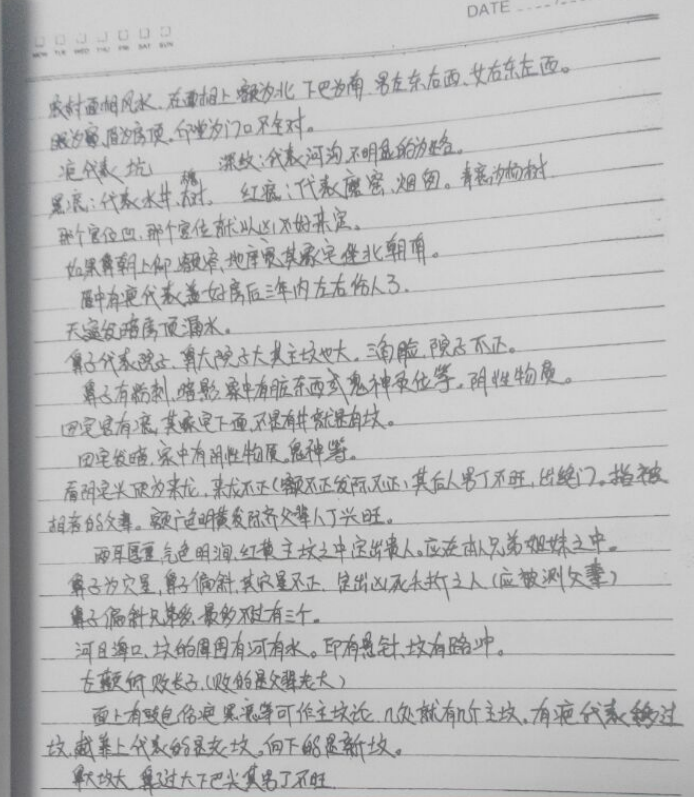 DATE
MON TUE WED THU FRI SAT SUN
面相风水、在面相上额为北 下巴为南 男左东右西、女右东左西。
眼为窗、眉为房顶、印堂为门口不全对。
疤代表坑 深纹:代表河沟、不明显的为路。
黑痣:代表水井、树。 红痣:代表 窑、烟囱。青痣为树
那个宫位凹、那个宫位就以凶不好来定。
如果鼻朝上仰 额窄、地库宽其家宅坐北朝南。
眉中有疤代表盖好房后三年内左右伤人了.
天 发暗房顶漏水。
鼻子代表院子、鼻大院子大其主坟也大。三角脸、院子不正。
鼻子有粉刺、暗影、家中有脏东西或鬼神 位等。阴性物质。
田宅宫有痣、其家宅下面、不是有井就是有坟。
田宅发暗、家中有阴性物质、鬼神等。
看阴宅头顶为来龙、来龙不正(额不正发际不正)其后人男丁不旺、出绝门。指被
相者的父辈。额广色明黄发际齐父辈人丁兴旺。
两耳厚 气色明润、红黄主坟之中定出贵人。应在本人兄弟姐妹之中。
鼻子为穴星、鼻子偏斜、其穴星不正、定出凶死夭折之人(应被测父辈)
鼻子偏斜兄弟多、最多不过有三个。
河目海口、坟的周围有河有水。印有悬针、坟有路冲。
左颧 败长子、(败的是父辈老大)
面上有 色伤疤黑痣等可作主坟论、几处就有几个主坟、有疤代表移过
坟、越靠上代表的是老坟、向下的是新坟。
鼻大坟大 鼻过大下巴尖其男丁不旺